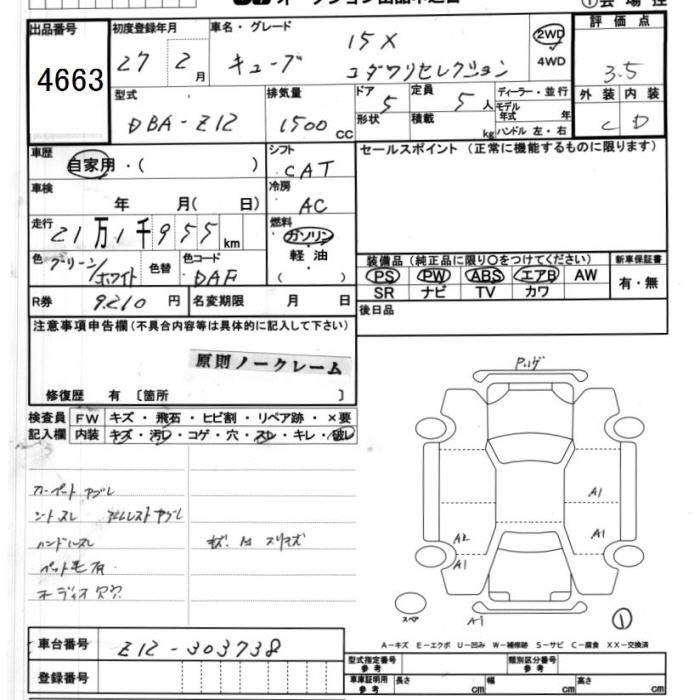 出品番号
4663
初度登録年月
27 2月
車名・グレード
キューブ
15X
コダワリセレクション
2WD
4WD
評価点
3.5
外装 内装
C D
型式
DBA-Z12
排気量
1500 CC
ドア
5
形状
定員
5人
積載
kg
ディーラー・並行
モデル年式 年
ハンドル 左・右
車歴
自家用・( )
シフト
CAT
セールスポイント(正常に機能するものに限ります)
車検
年 月( 日)
冷房
AC
走行
21万1千955km
燃料
ガソリン
軽油
( )
色
グリーン/ホワイト
色替
色コード
DAF
装備品(純正品に限り○をつけてください)
PS PW ABS エアB AW
SR ナビ TV カワ
新車保証書
有・無
R券
9210円
名変期限 月 日
後日品
注意事項申告欄(不具合内容等は具体的に記入して下さい)
原則ノークレーム
修復歴 有〔箇所 〕
検査員記入欄
FW キズ・飛石・ヒビ割・リペア跡・×要
内装 キズ・汚レ・コゲ・穴・スレ・キレ・破レ
カーペット ヤブレ
シートスレ アームレストヤブレ
ハンドルスレ
ペット毛有
A1
A1
A2
A1
A1
スペア
1
A-キズ E-エクボ U-凹み W-補修跡 S-サビ C-腐食 XX-交換済
車台番号
Z12-303738
登録番号
型式指定番号 参考
類別区分番号 参考
車庫証明用 参考
長さ cm
幅 cm
高さ cm